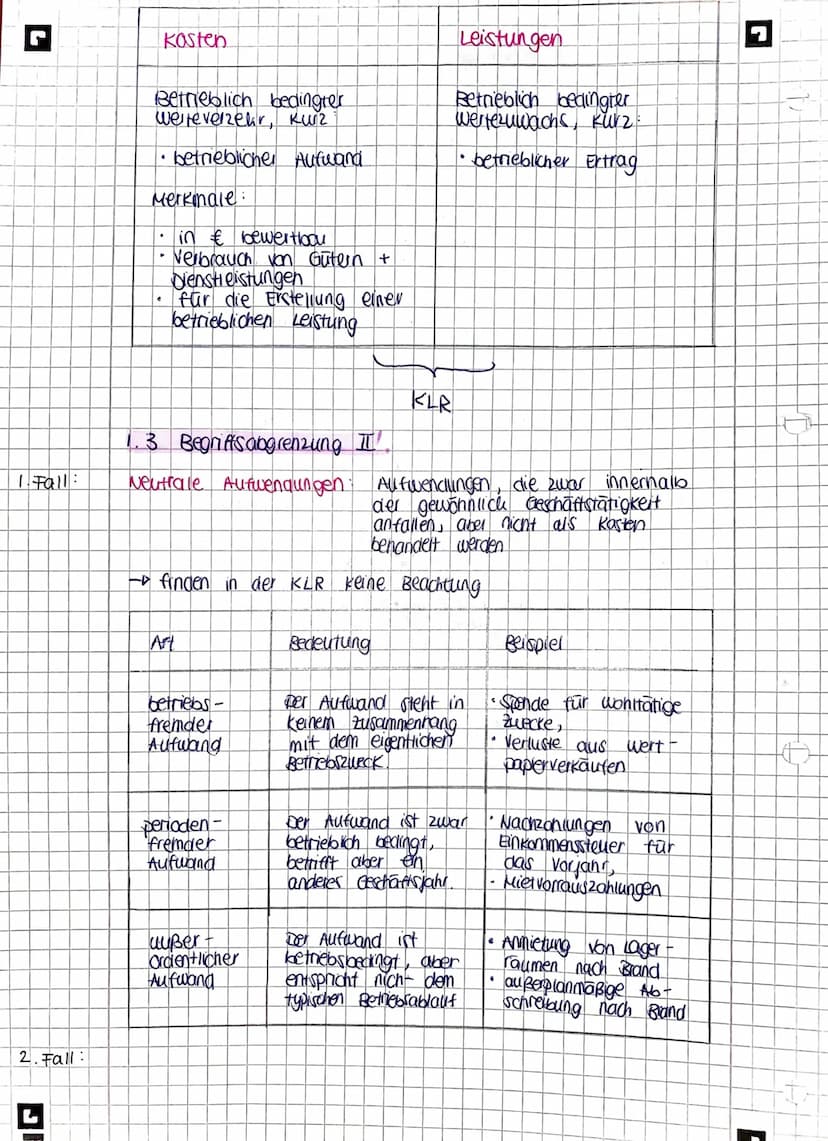 Kosten
Leistungen
Betrieblich bedingter
Werteverzehr, kurz:
• betrieblicher Aufwand
Merkmale:
• in € bewertbar
• Verbrauch von Gütern +
Dienstleistungen
• für die Erstellung einer
betrieblichen Leistung
Betrieblich bedingter
Wertezuwachs, kurz:
• betrieblicher Ertrag
KLR
1.3 Begriffsabgrenzung II
1. Fall:
Neutrale Aufwendungen: Aufwendungen, die zwar innerhalb
der gewöhnlich Geschäftstätigkeit
anfallen, aber nicht als Kosten
behandelt werden
→ finden in der KLR keine Beachtung
Art
Bedeutung
Beispiel
betriebs-
fremder
Aufwand
Der Aufwand steht in
keinem Zusammenhang
mit dem eigentlichen
Betriebszweck.
• Spende für wohltätige
Zwecke,
• Verluste aus Wert-
papierverkäufen
perioden-
fremder
Aufwand
Der Aufwand ist zwar
betrieblich bedingt,
betrifft aber ein
anderes Geschäftsjahr.
• Nachzahlungen von
Einkommenssteuer für
das Vorjahr,
• Mietvorrauszahlungen
außer-
ordentlicher
Aufwand
Der Aufwand ist
betriebsbedingt, aber
entspricht nicht dem
typischen Betriebsablauf
• Anmietung von Lager-
räumen nach Brand
• außerplanmäßige Ab-
schreibung nach Brand
2. Fall: